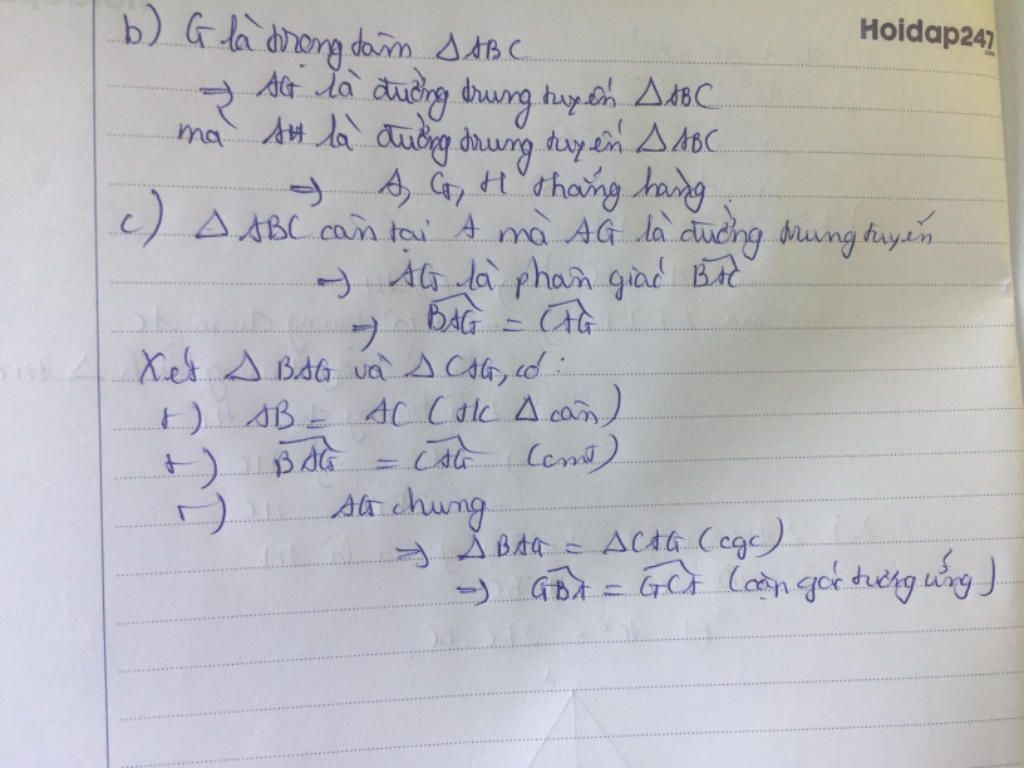 Hoidap247
.com
b) G là trọng tâm ΔABC
⇒ AG là đường trung tuyến ΔABC
mà AH là đường trung tuyến ΔABC
⇒ A, G, H thẳng hàng.
c) ΔABC cân tại A mà AG là đường trung tuyến
⇒ AG là phân giác \widehat{BAC}
⇒ \widehat{BAG} = \widehat{CAG}
Xét ΔBAG và ΔCAG, có :
+) AB = AC (t/c Δ cân)
+) \widehat{BAG} = \widehat{CAG} (cmt)
+) AG chung
⇒ ΔBAG = ΔCAG (cgc)
⇒ \widehat{GBA} = \widehat{GCA} (cặp góc tương ứng)